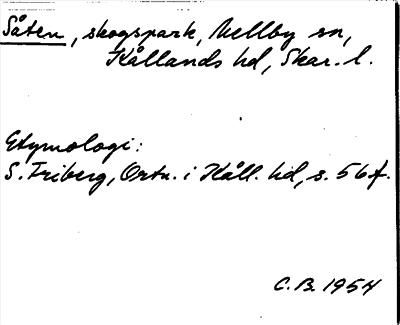 Såten, skogspark, Mellby sn,
Kållands hd, Skar. l.
Etymologi:
S. Friberg, Ortn. i Kåll. hd, s. 56 f.
C.B. 1954